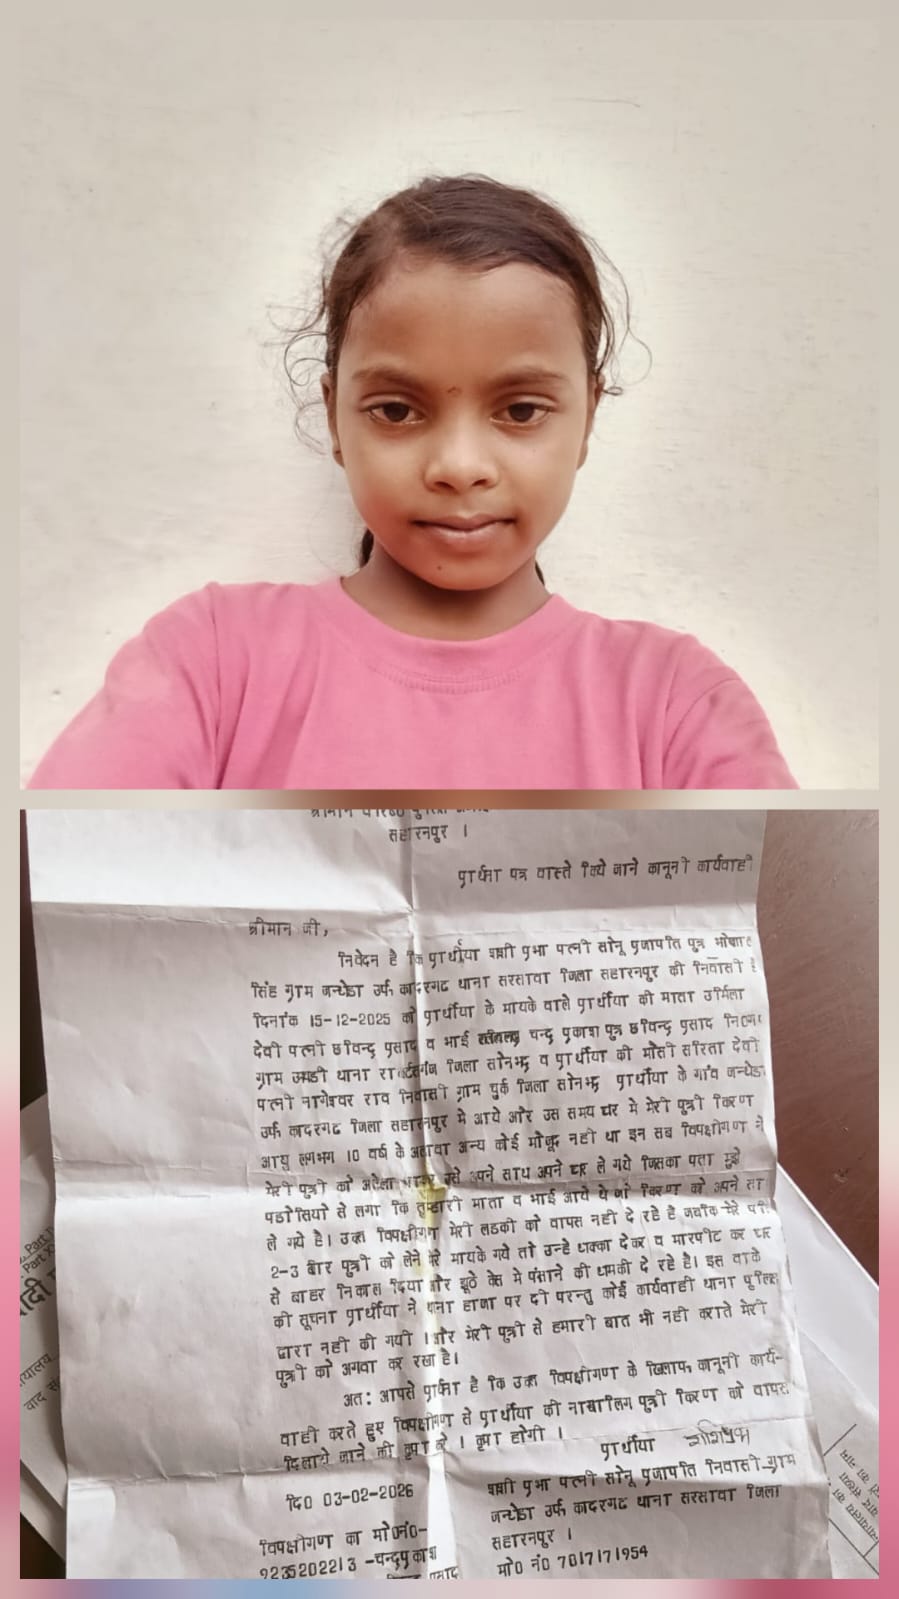 सहारनपुर ।
प्रार्थना पत्र वास्ते किये जाने कानूनी कार्यवाही
श्रीमान जी,
निवेदन है कि प्रार्थीया शशी प्रभा पत्नी सोनू प्रजापति पुत्र
सिंह ग्राम जन्धेडा उर्फ कादरगढ थाना सरसावा जिला सहारनपुर की निवासी है
दिनांक 15-12-2025 को प्रार्थीया के मायके वाले प्रार्थीया की माता उर्मिला
देवी पत्नी छविन्द्र प्रसाद व भाई चन्द्र प्रकाश पुत्र छविन्द्र प्रसाद
ग्राम थाना जिला सोनभद्र व प्रार्थीया की मौसी सरिता देवी
पत्नी नागेश्वर राव निवासी ग्राम चुर्क जिला सोनभद्र प्रार्थीया के गांव जन्धेडा
उर्फ कादरगढ जिला सहारनपुर मे आये और उस समय घर मे मेरी पुत्री किरण
आयु लगभग 10 वर्ष के अलावा अन्य कोई मौजूद नही था इन सब विपक्षीगण ने
मेरी पुत्री को अकेला उसे अपने साथ अपने घर ले गये जिसका पता मुझे
पडोसियो से लगा कि तुम्हारी माता व भाई आये थे जो किरण को अपने सा
ले गये है। उक्त विपक्षीगण मेरी लडकी को वापस नही दे रहे है जबकि मेरे पति
2-3 बार पुत्री को लेने मेरे मायके गये तो उन्हे धक्का देकर व मारपीट कर घर
से बाहर निकाल दिया और झूठे केस मे फंसाने की धमकी दे रहे है। इस वाके
की सूचना प्रार्थीया ने थाना हाजा पर दी परन्तु कोई कार्यवाही थाना पुलिस
द्वारा नही की गयी । और मेरी पुत्री से हमारी बात भी नही कराते मेरी
पुत्री को अगवा कर रखा है।
अत: आपसे प्रार्थना है कि उक्त विपक्षीगण के खिलाफ कानूनी कार्य-
वाही करते हुए विपक्षीगण से प्रार्थीया की नाबालिग पुत्री किरण को वापस
दिलाये जाने की कृपा करे । कृपा होगी ।
प्रार्थीया शशिप्रभा
शशी प्रभा पत्नी सोनू प्रजापति निवासी ग्राम
जन्धेडा उर्फ कादरगढ थाना सरसावा जिला
सहारनपुर ।
मो0 नं0 7017171954
दि0 03-02-2026
विपक्षीगण का मो0नं0-
9235202213 -चन्द्रप्रकाश